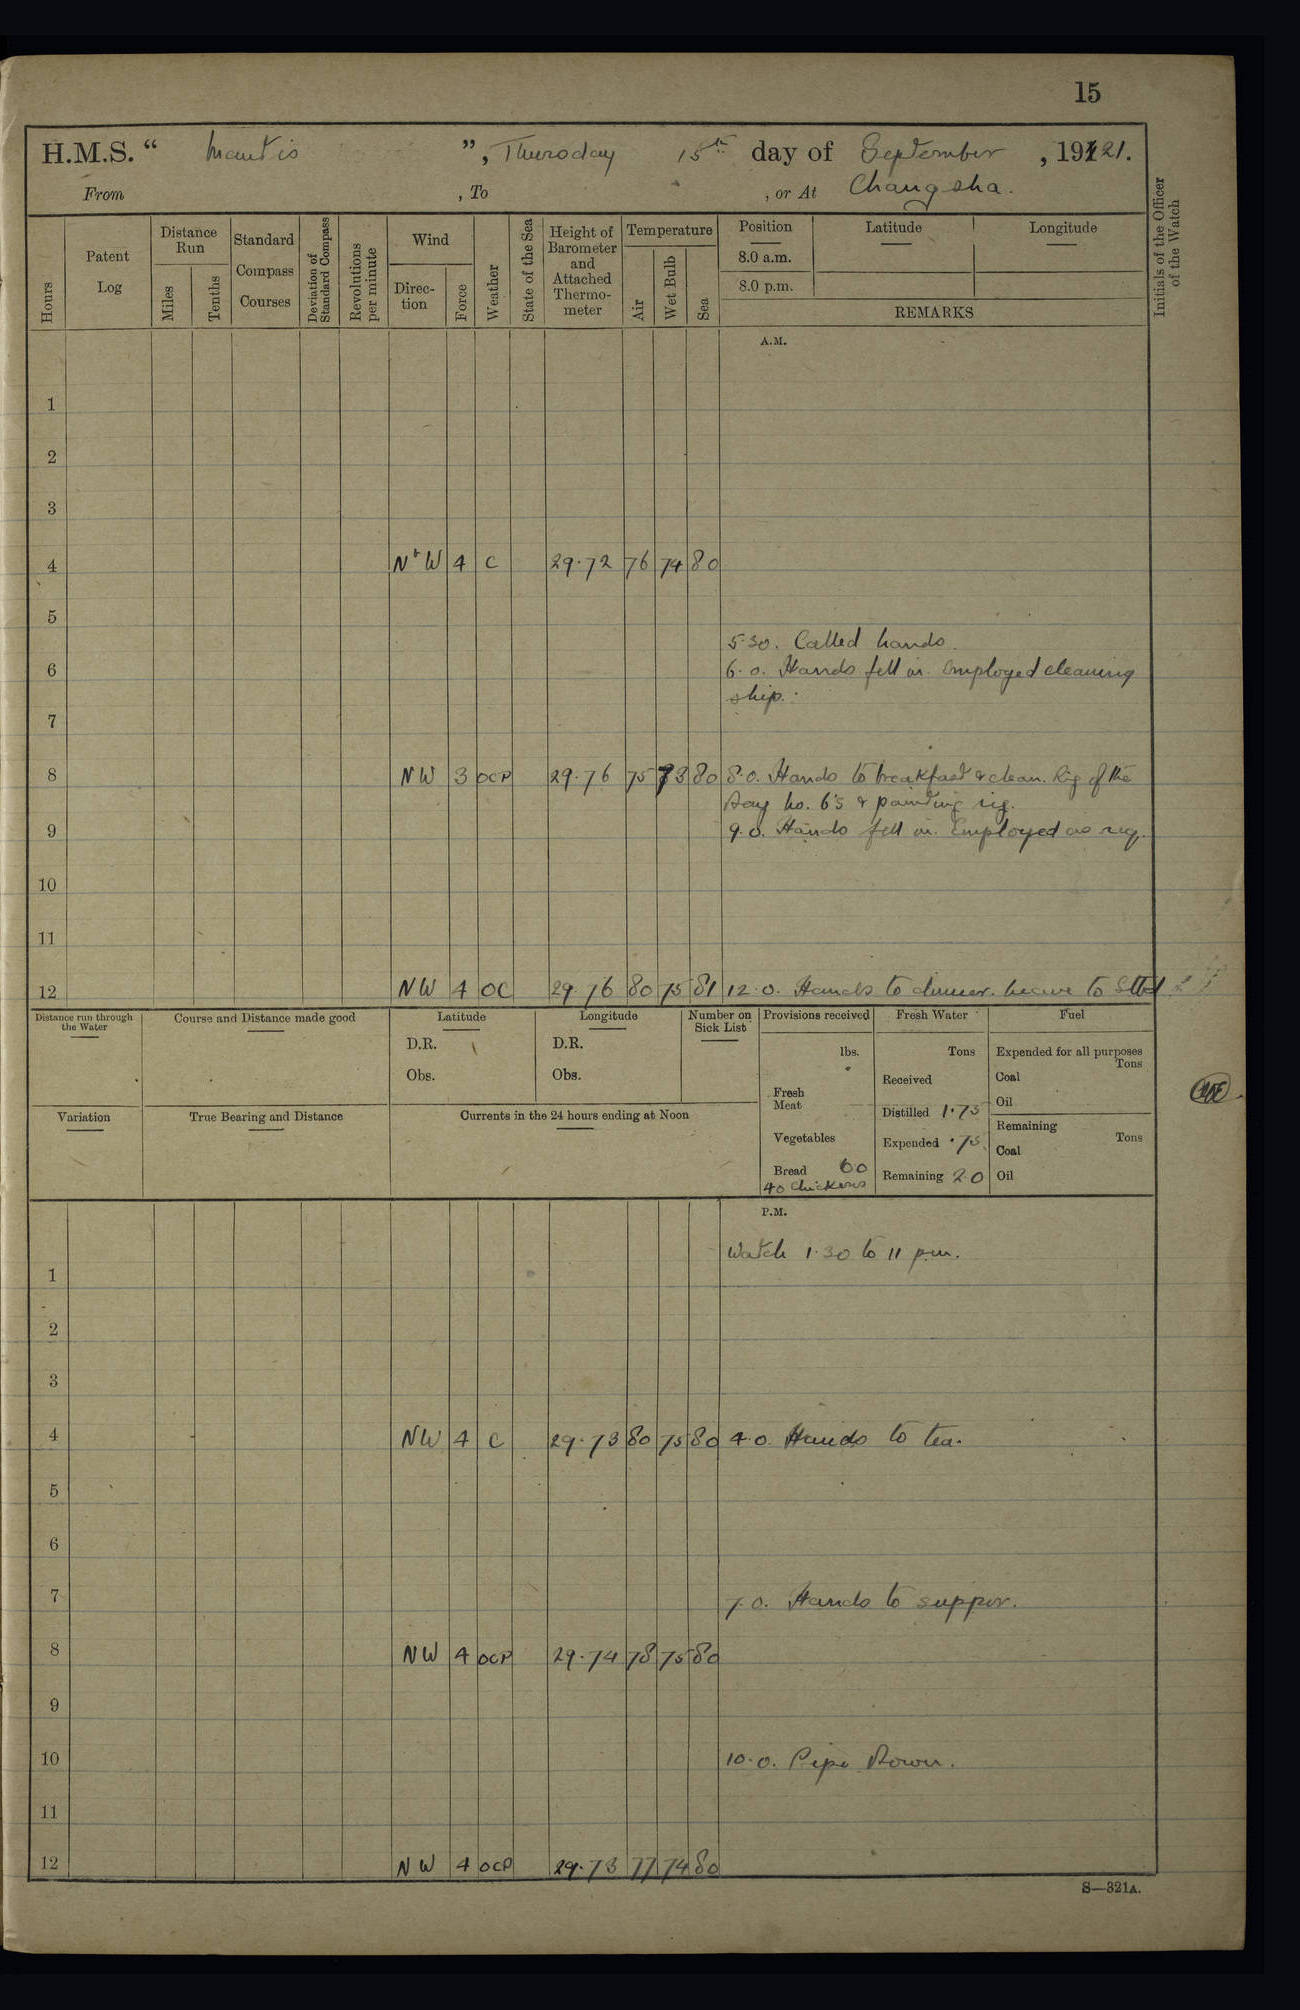 15
H.M.S. “ Mantis ”, Thursday 15th day of September, 1921.
From , To , or At Changsha.
Hours
Patent Log
Distance Run
Miles
Tenths
Standard Compass Courses
Deviation of Standard Compass
Revolutions per minute
Wind
Direction
Force
Weather
State of the Sea
Height of Barometer and Attached Thermometer
Temperature
Air
Wet Bulb
Sea
Position
8.0 a.m.
8.0 p.m.
Latitude
Longitude
REMARKS
Initials of the Officer of the Watch
A.M.
1
2
3
4 N+W 4 C 29.72 76 74 80
5
5.30. Called hands.
6 6.0. Hands fell in. Employed cleaning
ship.
7
8 NW 3 OCP 29.76 75 73 80 8.0. Hands to breakfast & clean. Rig of the
Day No. 6's & painting rig.
9 9.0. Hands fell in. Employed as req.
10
11
12 NW 4 OC 29.76 80 75 81 12.0. Hands to dinner. Leave to
Distance run through the Water
Course and Distance made good
Latitude
D.R.
Obs.
Longitude
D.R.
Obs.
Number on Sick List
Provisions received
lbs.
Fresh Meat
Vegetables
Bread 60
40 Chickens
Fresh Water
Tons
Received
Distilled 1.75
Expended .75
Remaining 20
Fuel
Expended for all purposes
Tons
Coal
Oil
Remaining
Tons
Coal
Oil
Variation
True Bearing and Distance
Currents in the 24 hours ending at Noon
P.M.
Watch 1.30 to 11 p.m.
1
2
3
4 NW 4 C 29.73 80 75 80 4.0. Hands to tea.
5
6
7 7.0. Hands to supper.
8 NW 4 OCP 29.74 78 75 80
9
10 10.0. Pipe Down.
11
12 NW 4 OCP 29.73 77 74 80
S—321A.